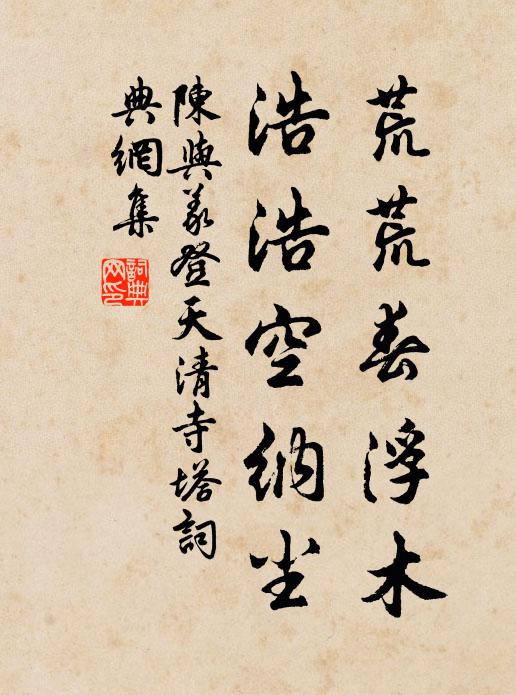 荒荒春浮木
浩浩空纳尘
陳與义登天清寺塔詞
典網集
詞典
网印